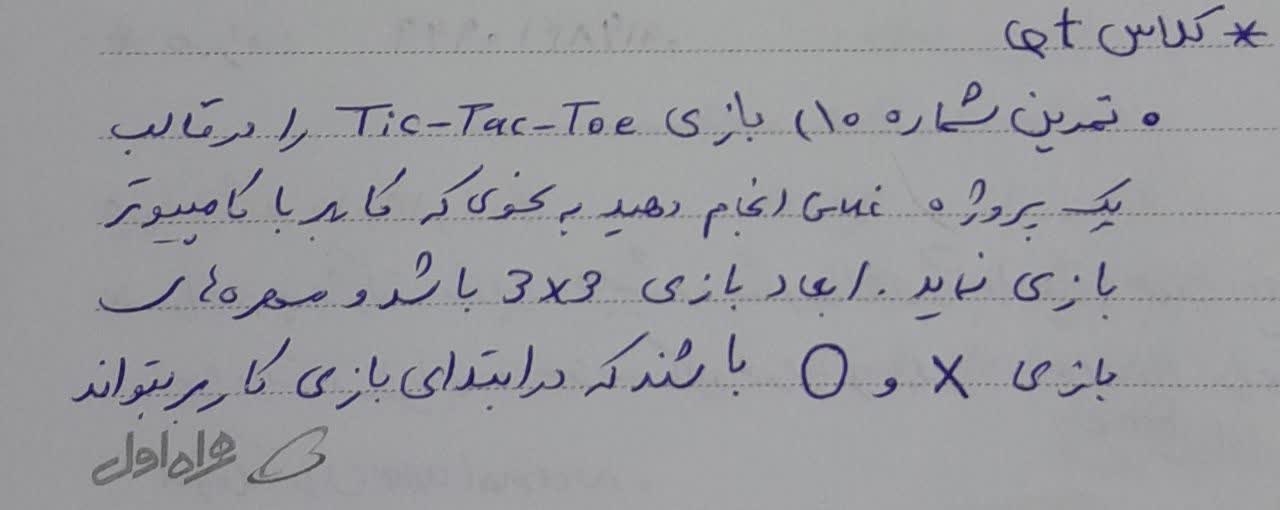 * کلاس Qt
• تمرین شماره ۱۰) بازی Tic-Tac-Toe را در قالب
یک پروژه Gui انجام دهید به نحوی که کاربر با کامپیوتر
بازی نماید. ابعاد بازی 3x3 باشد و مهره های
بازی X و O باشند که در ابتدای بازی کاربر بتواند
همراه اول